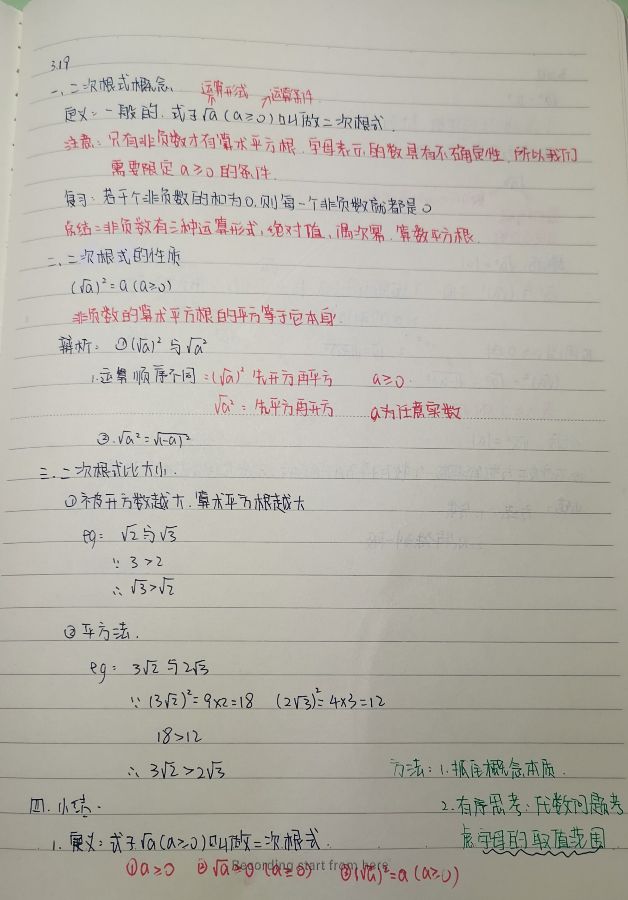 3.19
一、二次根式概念
运算形式 运算条件
定义：一般的，式子√a (a≥0) 叫做二次根式．
注意：只有非负数才有算术平方根．字母表示的数具有不确定性，所以我们
需要限定 a≥0 的条件．
复习：若干个非负数的和为0，则每一个非负数就都是0
总结：非负数有三种运算形式，绝对值，偶次幂，算数平方根．
二、二次根式的性质
(√a)²=a (a≥0)
非负数的算术平方根的平方等于它本身．
辨析：①(√a)² 与 √a²
1.运算顺序不同：(√a)² 先开方再平方 a≥0.
√a²：先平方再开方 a为任意实数
②.√a²=√(-a)²
三、二次根式比大小．
①被开方数越大，算术平方根越大
eg： √2与√3
∵ 3>2
∴ √3>√2
②平方法．
eg： 3√2 与 2√3
∵ (3√2)²=9×2=18 (2√3)²=4×3=12
18>12
∴ 3√2>2√3
方法：1.抓住概念本质．
四．小结．
2.有序思考：代数问题考
1.定义：式子√a(a≥0)叫做二次根式．
虑字母的取值范围
①a≥0 ②√a≥0 (a≥0) ③(√a)²=a (a≥0)
Recording start from here